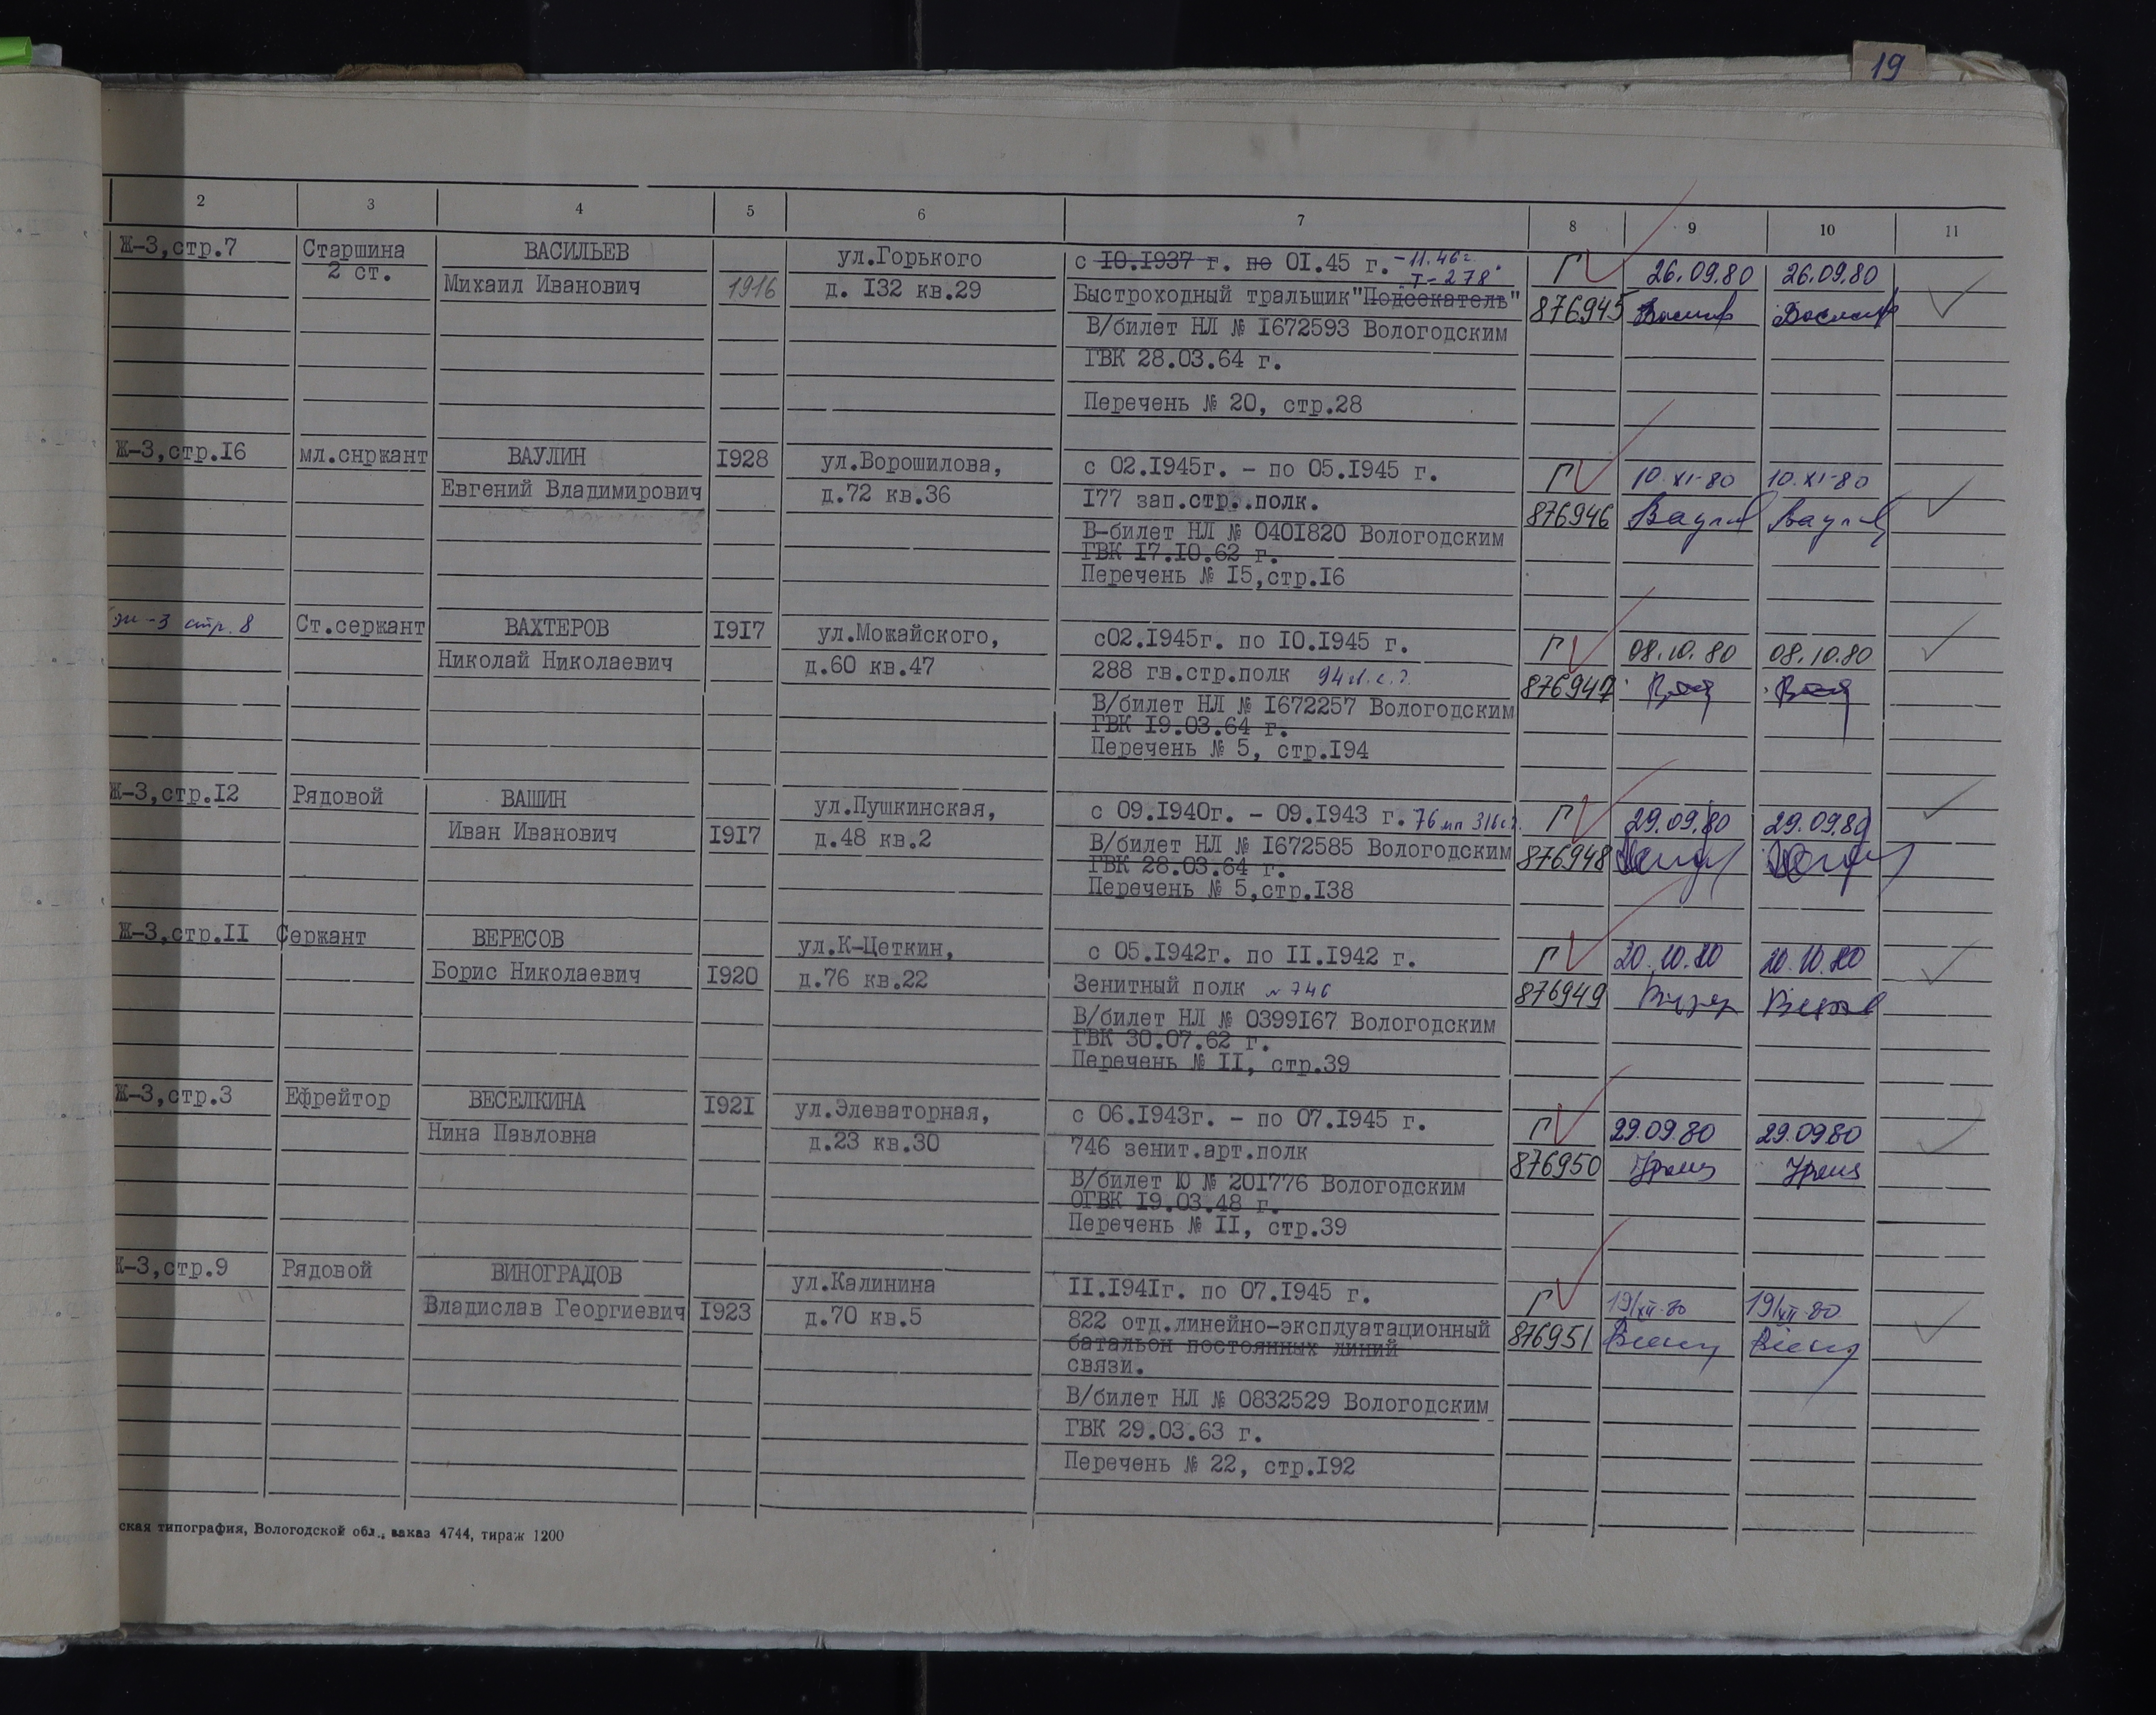 19
2 3 4 5 6 7 8 9 10 11
Ж-3,стр.7 Старшина ВАСИЛЬЕВ ул.Горького с 10.1937 г. по 01.45 г. -11.46г. Г 26.09.80 26.09.80
2 ст. Михаил Иванович 1916 д. 132 кв.29 Т-278
Быстроходный тральщик "Подсекатель" 876945
В/билет НЛ № 1672593 Вологодским
ГВК 28.03.64 г.
Перечень № 20, стр.28
Ж-3,стр.16 мл.снржант ВАУЛИН 1928 ул.Ворошилова, с 02.1945г. - по 05.1945 г. Г 10.XI-80 10.XI-80
Евгений Владимирович д.72 кв.36 177 зап.стр..полк. 876946
В-билет НЛ № 0401820 Вологодским
ГВК 17.10.62 г.
Перечень № 15,стр.16
ж-3 стр.8 Ст.сержант ВАХТЕРОВ 1917 ул.Можайского, с02.1945г. по 10.1945 г. Г 08.10.80 08.10.80
Николай Николаевич д.60 кв.47 288 гв.стр.полк 876947
В/билет НЛ № 1672257 Вологодским
ГВК 19.03.64 г.
Перечень № 5, стр.194
Ж-3,стр.12 Рядовой ВАШИН ул.Пушкинская, с 09.1940г. - 09.1943 г. 76 мп 316 Г 29.09.80 29.09.80
Иван Иванович 1917 д.48 кв.2 В/билет НЛ № 1672585 Вологодским 876948
ГВК 28.03.64 г.
Перечень № 5,стр.138
Ж-3,стр.11 Сержант ВЕРЕСОВ ул.К-Цеткин, с 05.1942г. по 11.1942 г. Г 20.10.80 20.10.80
Борис Николаевич 1920 д.76 кв.22 Зенитный полк № 746 876949
В/билет НЛ № 0399167 Вологодским
ГВК 30.07.62 г.
Перечень № 11, стр.39
Ж-3,стр.3 Ефрейтор ВЕСЕЛКИНА 1921 ул.Элеваторная, с 06.1943г. - по 07.1945 г. Г 29.09.80 29.09.80
Нина Павловна д.23 кв.30 746 зенит.арт.полк 876950
В/билет Ю № 201776 Вологодским
ОГВК 19.03.48 г.
Перечень № 11, стр.39
Ж-3,стр.9 Рядовой ВИНОГРАДОВ ул.Калинина 11.1941г. по 07.1945 г. Г 19/XII-80 19/XII-80
Владислав Георгиевич 1923 д.70 кв.5 822 отд.линейно-эксплуатационный 876951
батальон постоянных линий
связи.
В/билет НЛ № 0832529 Вологодским
ГВК 29.03.63 г.
Перечень № 22, стр.192
ская типография, Вологодской обл., заказ 4744, тираж 1200